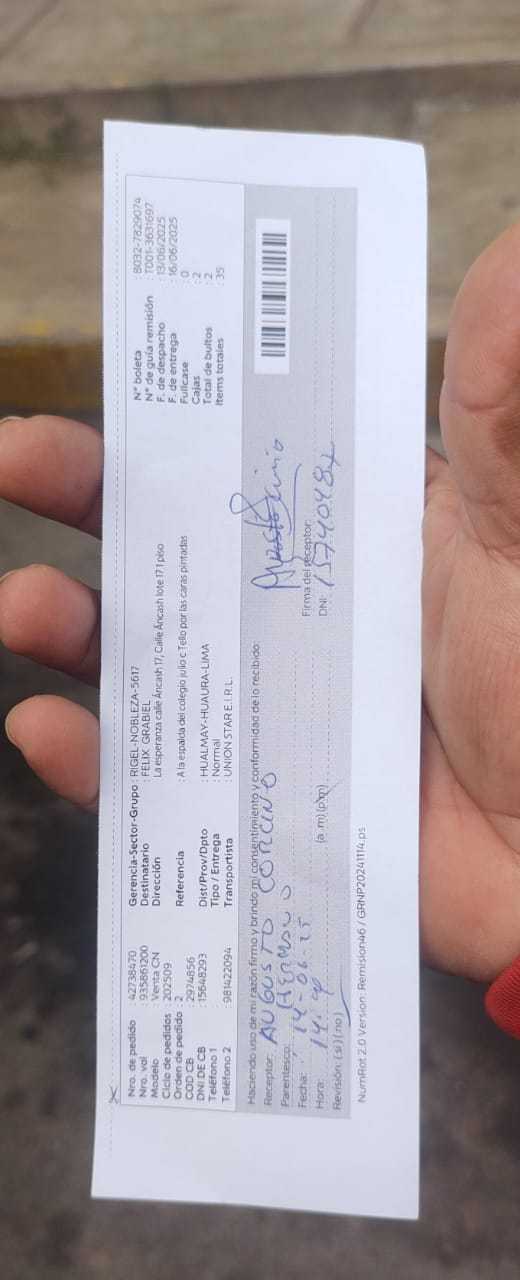 Nro. de pedido : 42738470
Nro. vol : 935861200
Modelo : Venta CN
Ciclo de pedidos : 202509
Orden de pedido : 2
COD CB : 2974856
DNI DE CB : 15648293
Teléfono 1 :
Teléfono 2 : 981422094
Gerencia-Sector-Grupo : RIGEL-NOBLEZA-5617
Destinatario : FELIX GRABIEL
Dirección : La esperanza calle Áncash 17, Calle Áncash lote 17 1 piso
Referencia : A la espalda del colegio julio c Tello por las caras pintadas
Dist/Prov/Dpto : HUALMAY-HUAURA-LIMA
Tipo / Entrega : Normal
Transportista : UNION STAR E.I.R.L.
N° boleta : B032-7829074
N° de guía remisión : T001-3631697
F. de despacho : 13/06/2025
F. de entrega : 16/06/2025
Fullcase : 0
Cajas : 2
Total de bultos : 2
Items totales : 35
Haciendo uso de mi razón firmo y brindo mi consentimiento y conformidad de lo recibido:
Receptor: AUGUSTO CORCINO
Parentesco: HERMANO
Fecha: 14-06-25
Hora: (a.m)(p.m)
Revisión: (si)(no)
Firma del receptor:
DNI:
NumRot 2.0 Version: Remision46 / GRNP20241114.ps